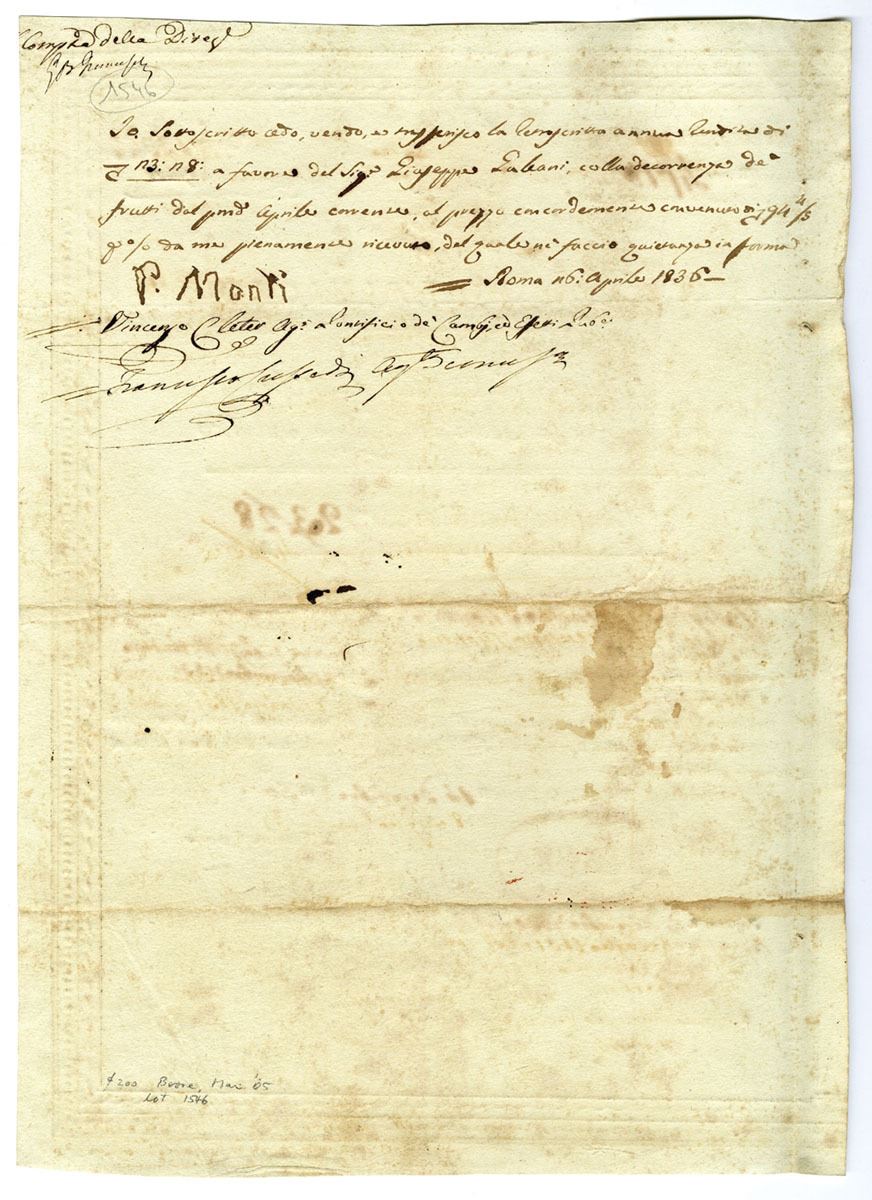 della Direz.e
1546
Io Sottoscritto cedo, vendo, e trasferisco la retroscritta annua rendita di
a favore del Sig.r Giuseppe Galeani, colla decorrenza de
frutti dal Aprile corrente, al prezzo concordemente convenuto di 94 4/5
p% da me pienamente ricevuto, del quale ne faccio quietanza in forma
Roma 16: Aprile 1836
P. Monti
Vincenzo Cleter Pontificio de Cambj, ed Effetti Pub.i
Francesco
$200 Boone, Mar '05
Lot 1546